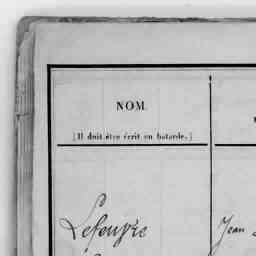 NOM.
[Il doit être écrit en batarde.]
Lefeuvre Jean